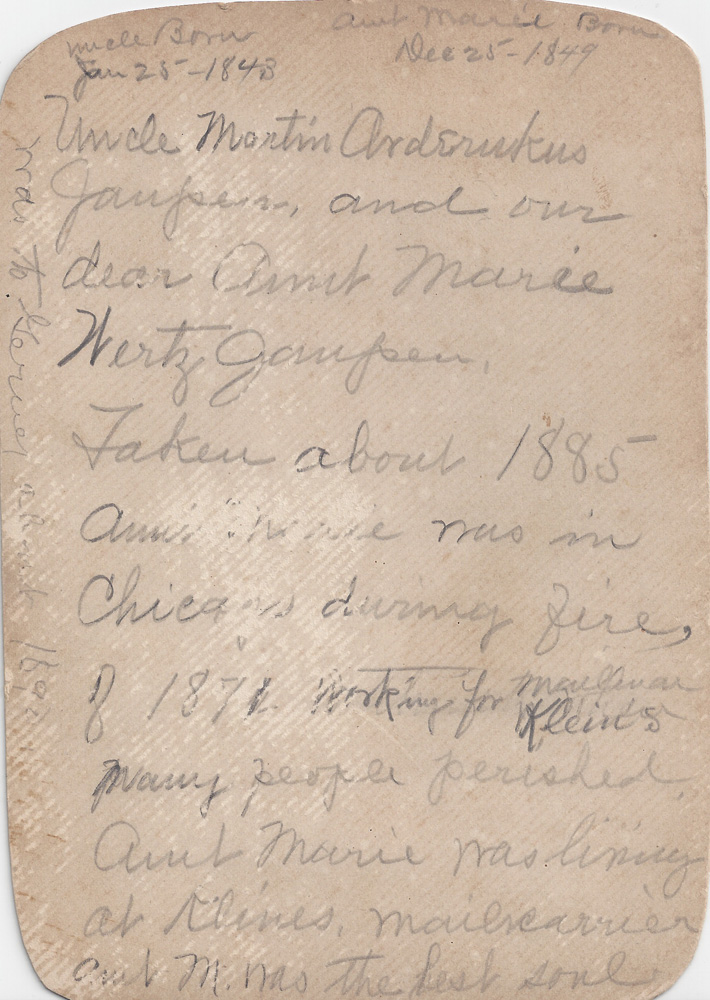 Uncle Born
Jan 25-1843
Aunt Marie Born
Dec 25-1849
Uncle Martin
Jaupsen, and our
dear Aunt Marie
Wertz Jaupsen.
Taken about 1885
Aunt Marie was in
Chicago during fire,
of 1871. Working for
Klein's
many people perished.
Aunt Marie was living
at Klines, mailcarrier
Aunt M. was the best soul